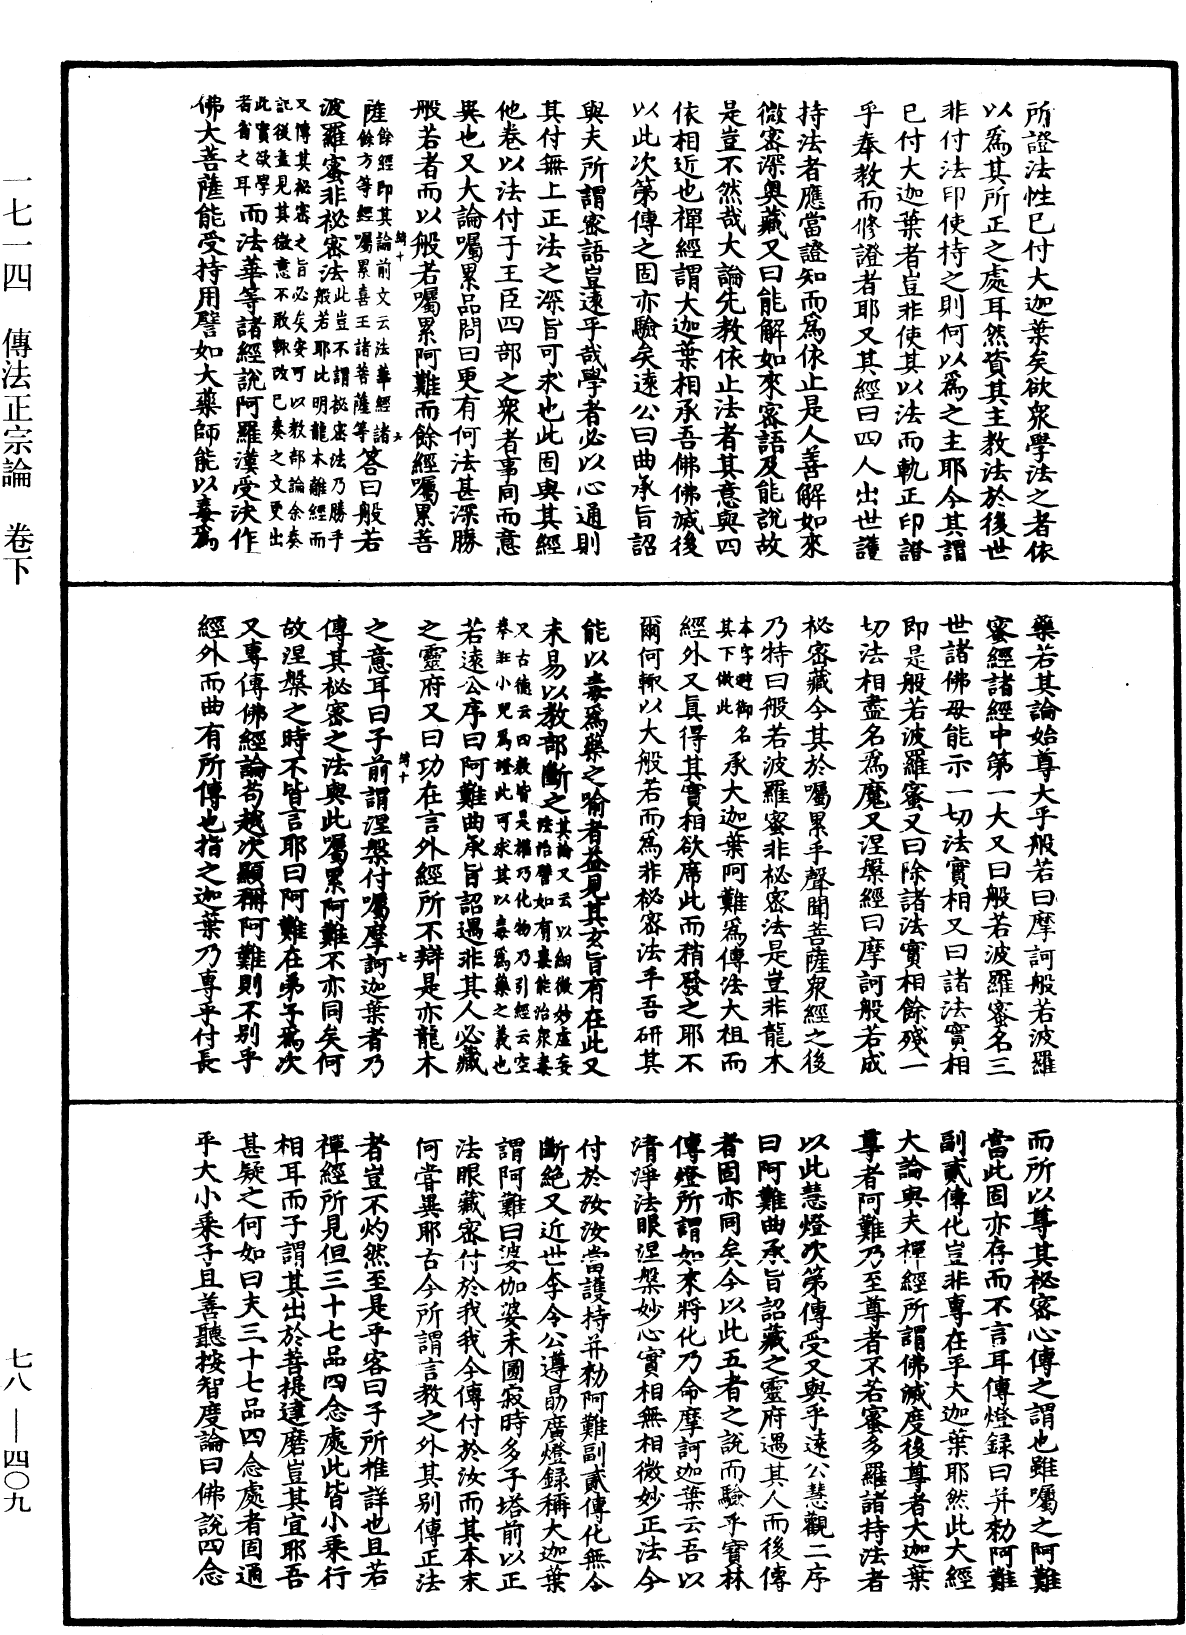 一七一四　傳法正宗論　卷下
所證法性已付大迦葉矣欲衆學法之者依
以爲其所正之處耳然資其主教法於後世
非付法印使持之則何以爲之主耶今其謂
已付大迦葉者豈非使其以法而軌正印證
乎奉教而修證者耶又其經曰四人出世護
持法者應當證知而爲依止是人善解如來
微密深奧藏又曰能解如來密語及能說故
是豈不然哉大論先教依止法者其意與四
依相近也禪經謂大迦葉相承吾佛佛滅後
以此次第傳之固亦驗矣遠公曰曲承旨詔
與夫所謂密語豈遠乎哉學者必以心通則
其付無上正法之深旨可求也此固與其經
他卷以法付于王臣四部之衆者事同而意
異也又大論囑累品問曰更有何法甚深勝
般若者而以般若囑累阿難而餘經囑累菩
綺十　六
薩餘經即其論前文云法華經諸
餘方等經囑累喜王諸菩薩等答曰般若
波羅蜜非祕密法此豈不謂祕密法乃勝乎
般若耶比明龍木離經而
又傳其祕密之旨必矣安可以教部論余奏
記後盡見其微意不敢輒改已奏之文更出
此實欲學
者省之耳而法華等諸經說阿羅漢受決作
佛大菩薩能受持用譬如大藥師能以毒爲
藥若其論始尊大乎般若曰摩訶般若波羅
蜜經諸經中第一大又曰般若波羅蜜名三
世諸佛母能示一切法實相又曰諸法實相
即是般若波羅蜜又曰除諸法實相餘殘一
切法相盡名爲魔又涅槃經曰摩訶般若成
祕密藏今其於囑累乎聲聞菩薩衆經之後
乃特曰般若波羅蜜非祕密法是豈非龍木
本字避御名
其下倣此承大迦葉阿難爲傳法大祖而
經外又眞得其實相欲席此而稍發之耶不
爾何輒以大般若而爲非祕密法乎吾研其
能以毒爲藥之喻者益見其玄旨有在此又
未易以教部斷之其論又云以細微妙虛妄
陰治譬如有毒能治衆毒
又古德云四教皆是權乃化物乃引經云空
拳誑小兒爲證此可求其以毒爲藥之義也
若遠公序曰阿難曲承旨詔遇非其人必藏
之靈府又曰功在言外經所不辯是亦龍木
綺十　七
之意耳曰子前謂涅槃付囑摩訶迦葉者乃
傳其祕密之法與此囑累阿難不亦同矣何
故涅槃之時不皆言耶曰阿難在弟子爲次
又專傳佛經論苟越次顯稱阿難則不別乎
經外而曲有所傳也指之迦葉乃專乎付長
而所以尊其祕密心傳之謂也雖囑之阿難
當此固亦存而不言耳傳燈錄曰并勅阿難
副貳傳化豈非專在乎大迦葉耶然此大經
大論與夫禪經所謂佛滅度後尊者大迦葉
尊者阿難乃至尊者不若蜜多羅諸持法者
以此慧燈次第傳受又與乎遠公慧觀二序
曰阿難曲承旨詔藏之靈府遇其人而後傳
者固亦同矣今以此五者之說而驗乎寶林
傳燈所謂如來將化乃命摩訶迦葉云吾以
清淨法眼涅槃妙心實相無相微妙正法今
付於汝汝當護持并勅阿難副貳傳化無令
斷絕又近世李令公遵勗廣燈錄稱大迦葉
謂阿難曰婆伽婆未圓寂時多子塔前以正
法眼藏密付於我我今傳付於汝而其本末
何嘗異耶古今所謂言教之外其別傳正法
者豈不灼然至是乎客曰子所推詳也且若
禪經所見但三十七品四念處此皆小乘行
相耳而子謂其出於菩提達磨豈其宜耶吾
甚疑之何如曰夫三十七品四念處者固通
乎大小乘子且善聽按智度論曰佛說四念
七八—四〇九